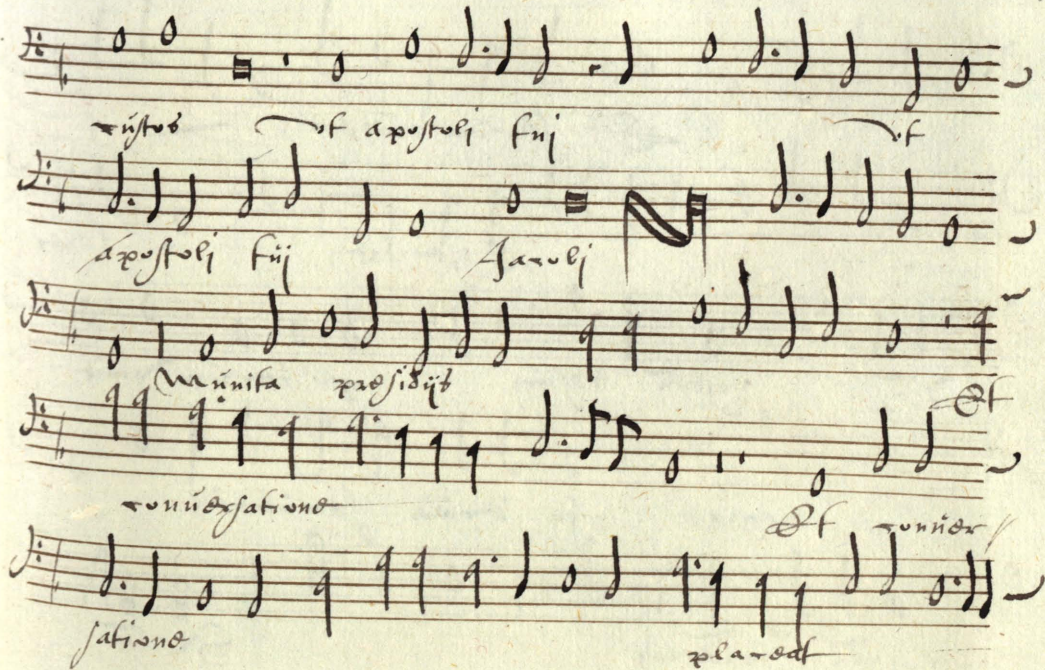 custos ut apostoli tui ut
apostoli tui Jacobi
Munita presidijs Et
conversatione Et conver//
satione placeat